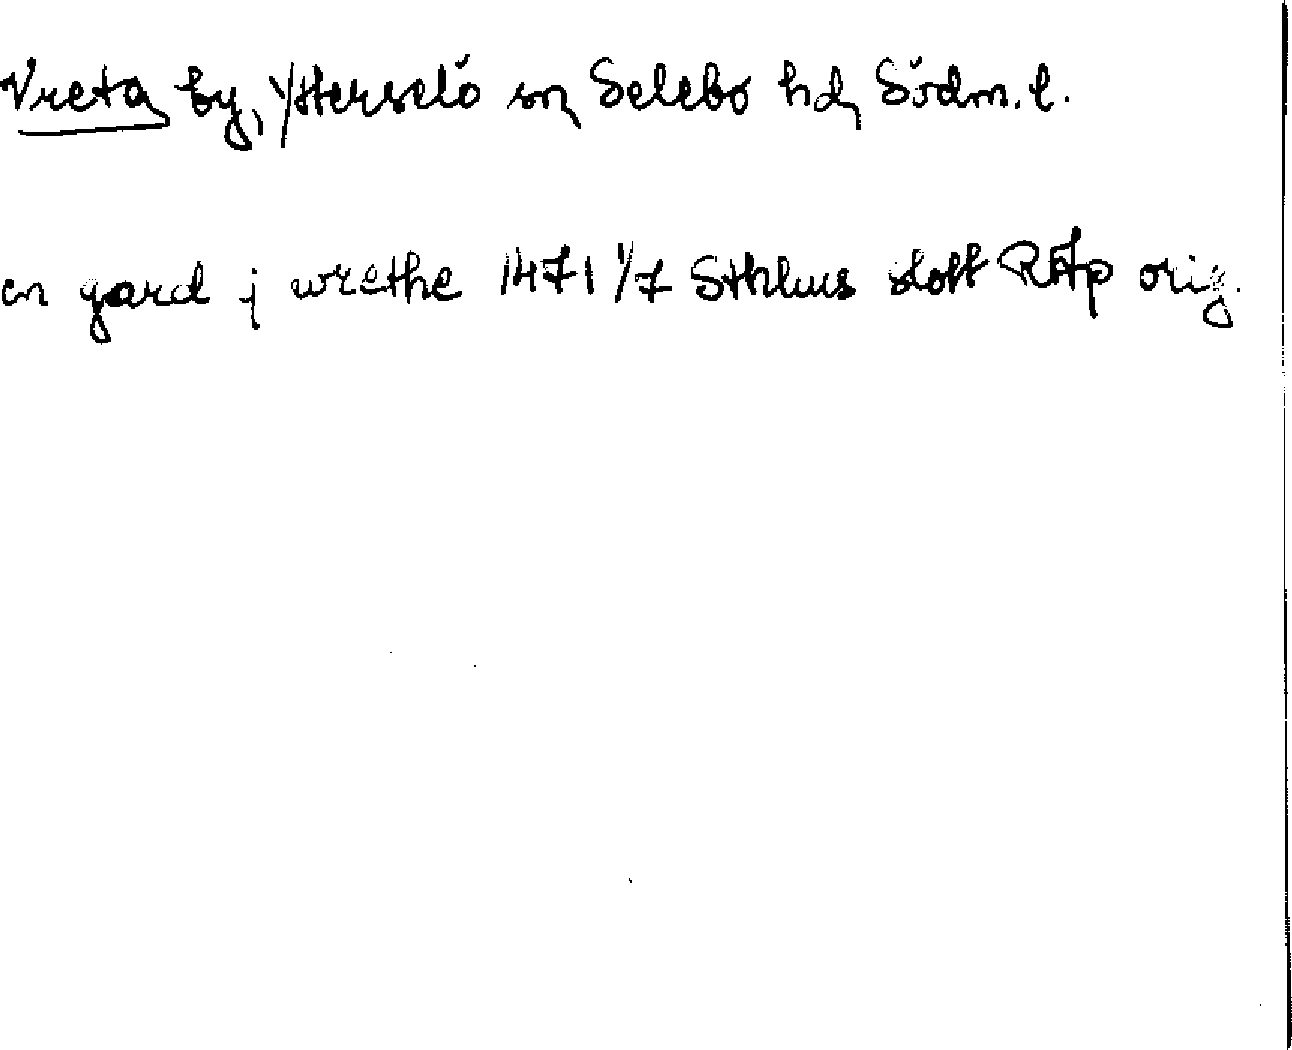 Vreta by, Ytterselö sn Selebo hd, Södm. l.
en gard j wrethe 1471 1/7 Sthlms slott RAp orig.